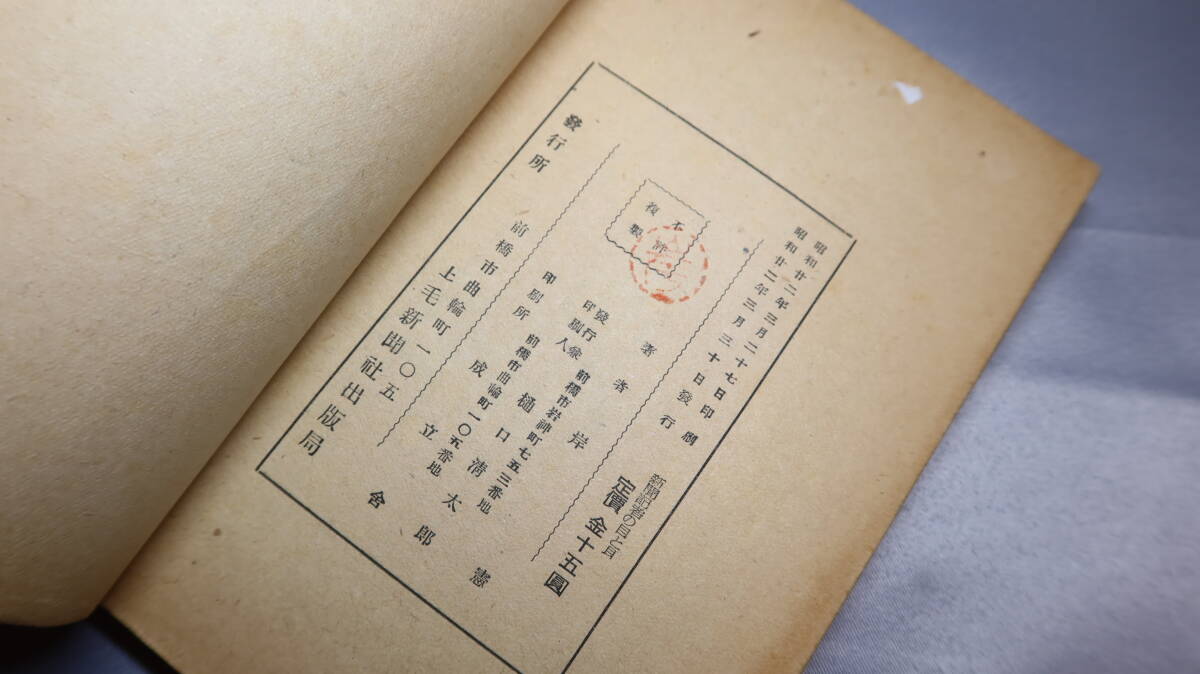 昭和廿二年三月二十七日印刷
昭和廿二年三月三十日發行
新聞記者の目と耳
定價 金十五圓
不許
複製
著者 岸 憲
發行兼
印刷人
前橋市岩神町七五三番地
樋口清太郎
印刷所
前橋市曲輪町一〇五番地
成立舎
發行所
前橋市曲輪町一〇五
上毛新聞社出版局